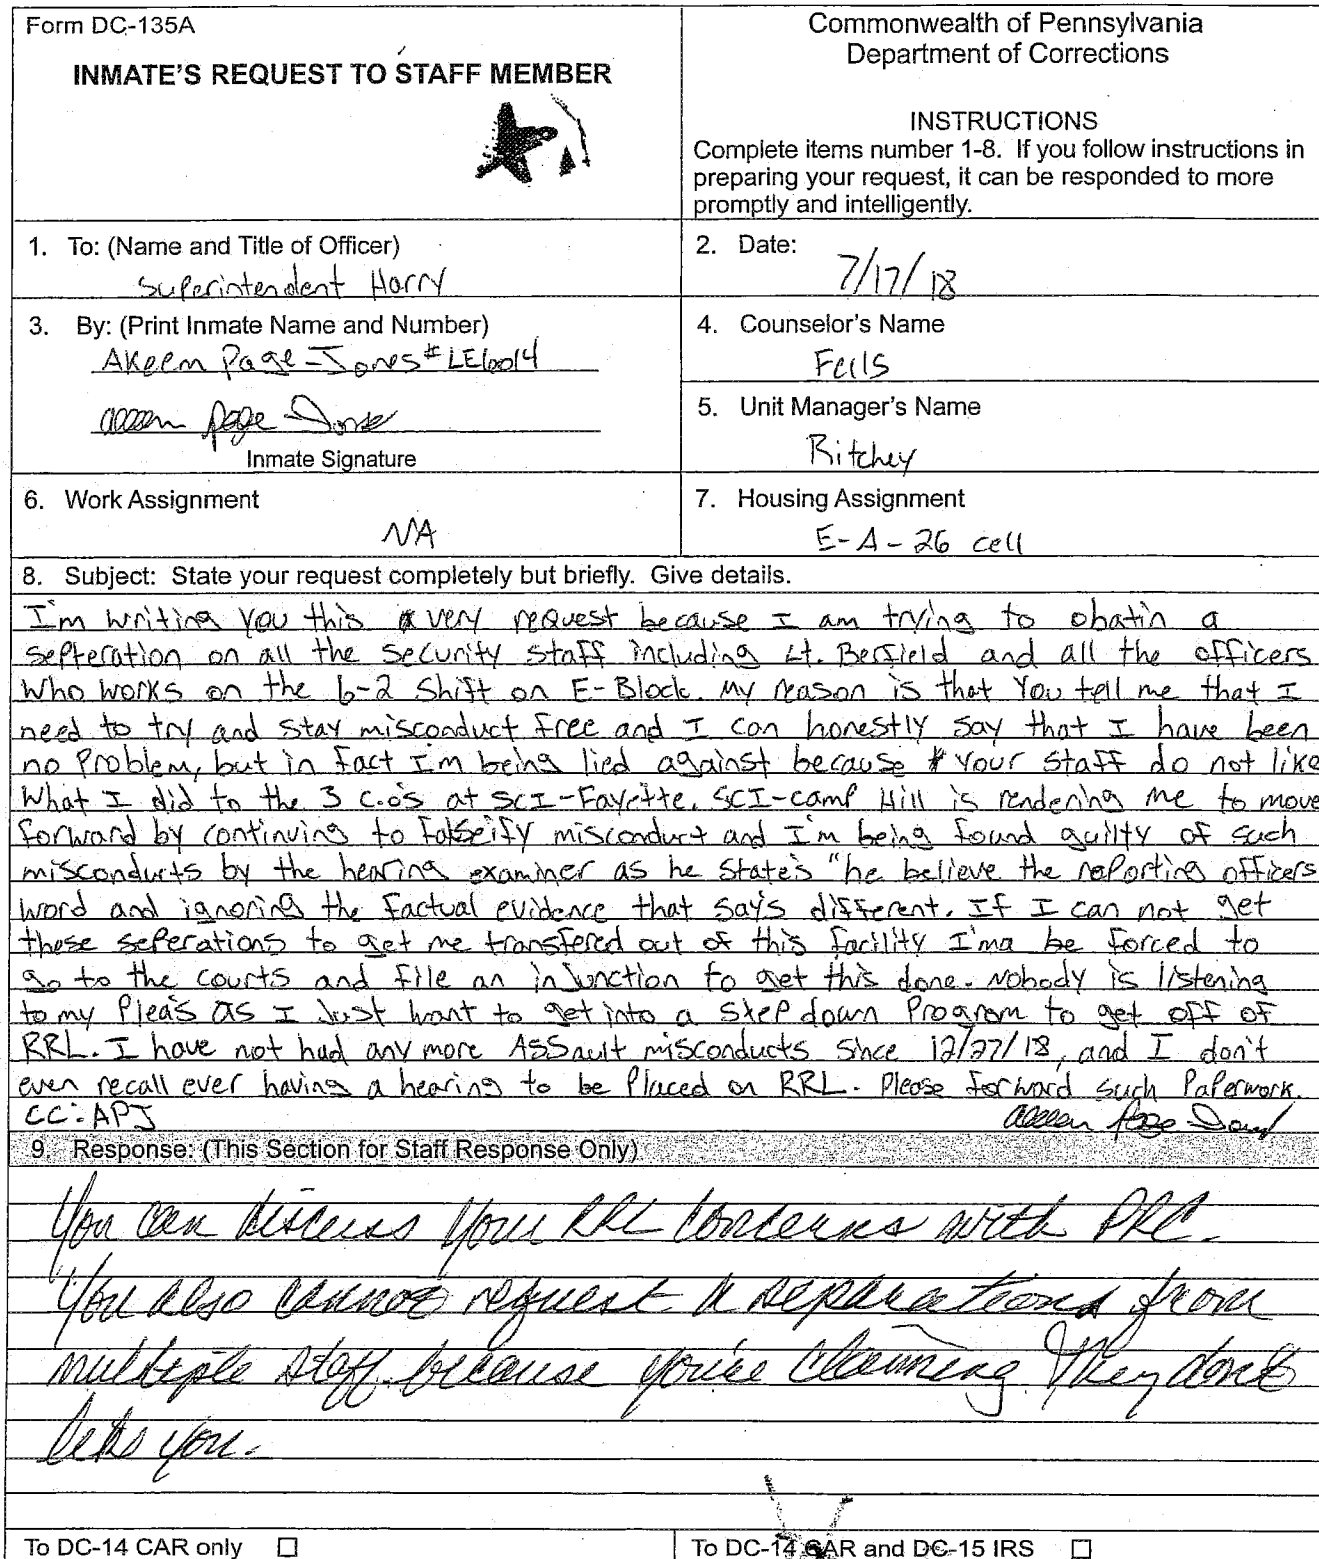 Form DC-135A
INMATE'S REQUEST TO STAFF MEMBER
Commonwealth of Pennsylvania
Department of Corrections
INSTRUCTIONS
Complete items number 1-8. If you follow instructions in
preparing your request, it can be responded to more
promptly and intelligently.
1. To: (Name and Title of Officer)
Superintendent Harry
2. Date:
7/17/18
3. By: (Print Inmate Name and Number)
AKeem Page-Jones #LE6014
Inmate Signature
4. Counselor's Name
Feils
5. Unit Manager's Name
Ritchey
6. Work Assignment
NA
7. Housing Assignment
E-A-26 cell
8. Subject: State your request completely but briefly. Give details.
I'm writing you this very request because I am trying to obatin a
septeration on all the security staff including Lt. Berfield and all the officers
who works on the 6-2 shift on E-Block. My reason is that you tell me that I
need to try and stay misconduct free and I can honestly say that I have been
no problem, but in fact I'm being lied against because your staff do not like
what I did to the 3 C.O's at SCI-Fayette. SCI-Camp Hill is rendering me to move
forward by continuing to falseify misconduct and I'm being found guilty of such
misconducts by the hearing examiner as he state's "he believe the reporting officers
word and ignoring the factual evidence that say's different. If I can not get
these seperations to get me transfered out of this facility I'ma be forced to
go to the courts and file an injunction to get this done. Nobody is listening
to my plea's as I just want to get into a step down program to get off of
RRL. I have not had any more Assault misconducts since 12/27/18, and I don't
even recall ever having a hearing to be placed on RRL. Please forward such paperwork.
CC: APJ
9. Response: (This Section for Staff Response Only)
You can discuss your RRL concerns with PRC.
You also cannot request a separations from
multiple staff because you're claiming they don't
like you.
To DC-14 CAR only
To DC-14 CAR and DC-15 IRS